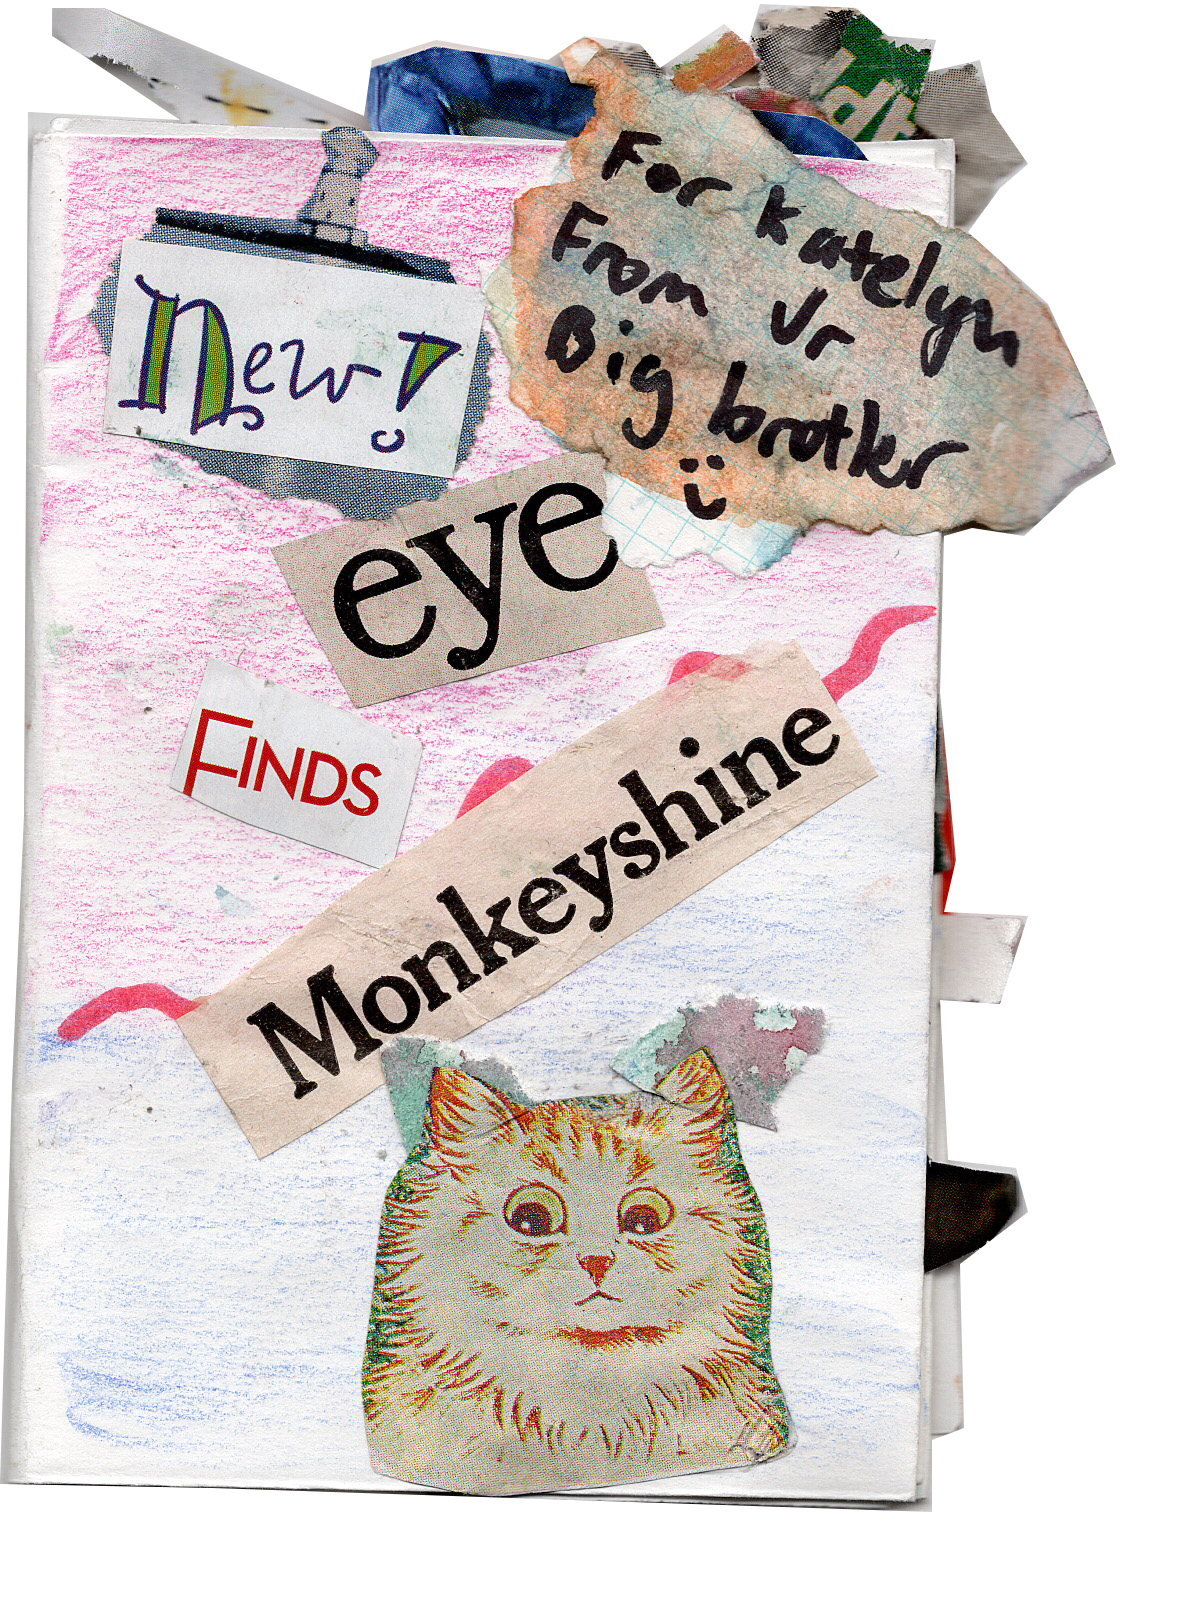 For Katelyn
From Ur
Big brother
New!
eye
FINDS
Monkeyshine